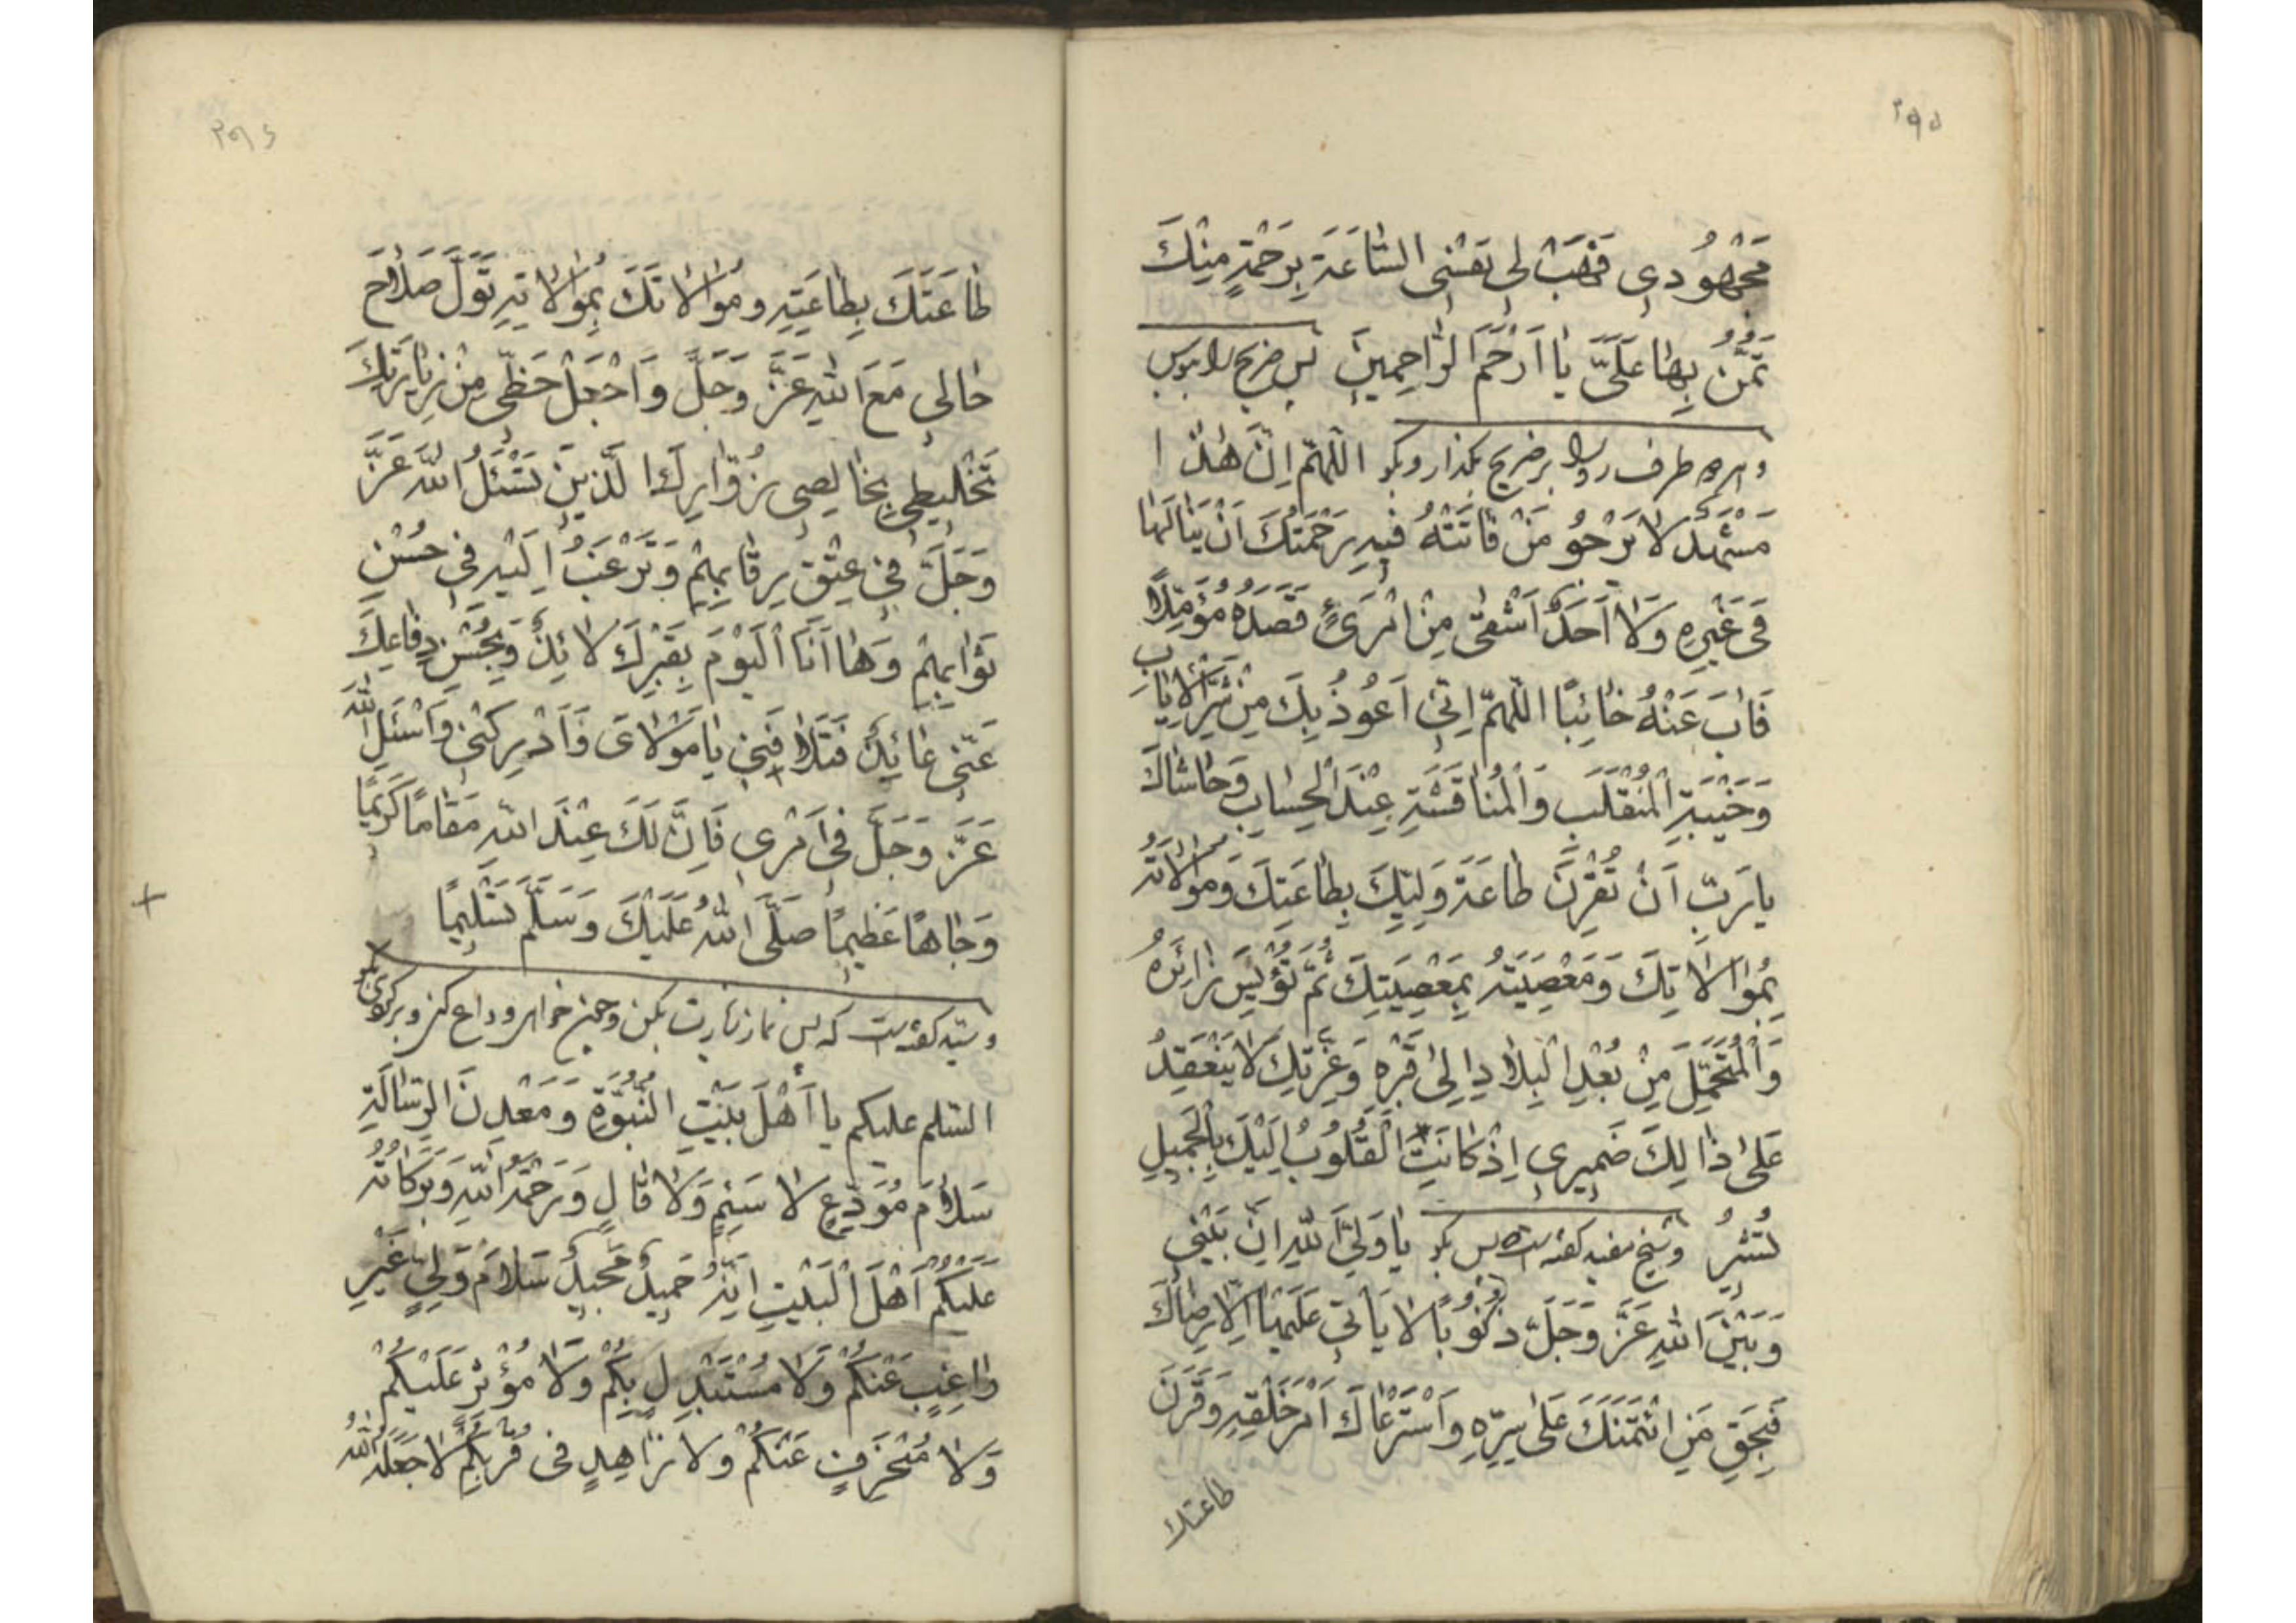 ۲۹۵
مَجْهُودِی فَهَبْ لِی نَفْسِی السَّاعَةَ بِرَحْمَةٍ مِنْكَ
تَمُنُّ بِهَا عَلَیَّ یَا اَرْحَمَ الرَّاحِمِینَ پس ضریح را ببوس
و هر دو طرف رو را بر ضریح بگذار و بگو اللهم اِنَّ هٰذَا
مَشْهَدٌ لَا یَرْجُو مَنْ فَاتَتْهُ فِیهِ رَحْمَتُكَ اَنْ یَنَالَهَا
فِی غَیْرِهِ وَلَا اَحَدٌ اَشْقٰی مِنْ امْرَئٍ قَصَدَهُ مُؤَمِّلًا
فَابَ عَنْهُ خَائِبًا اللّهمّ اِنّی اَعُوذُ بِكَ مِنْ شَرِّ الْاِیَابِ
وَخَیْبَةِ الْمُنْقَلَبِ وَالْمُنَاقَشَةِ عِنْدَ الْحِسَابِ وَحَاشَاكَ
یا رَبِّ اَنْ تُقْرِنَ طَاعَةَ وَلِیِّكَ بِطَاعَتِكَ وَمُوَالَاتَهُ
بِمُوَالَاتِكَ وَمَعْصِیَتَهُ بِمَعْصِیَتِكَ ثُمَّ تُؤْیِسَ زَائِرَهُ
وَالْمُتَحَمِّلَ مِنْ بُعْدِ الْبِلَادِ اِلٰی قَبْرِهِ وَعِزَّتِكَ لَا یَنْعَقِدُ
عَلٰی ذٰلِكَ ضَمِیرِی اِذْ كَانَتِ الْقُلُوبُ اِلَیْكَ بِالْجَمِیلِ
تُشِیرُ و شیخ مفید گفته است پس بگو یَا وَلِیَّ اللّهِ اِنَّ بَیْنِی
وَبَیْنَ اللهِ عَزَّ وَجَلَّ ذُنُوبًا لَا یَأْتِی عَلَیْهَا اِلَّا رِضَاكَ
فَبِحَقِّ مَنِ ائْتَمَنَكَ عَلٰی سِرِّهِ وَاسْتَرْعَاكَ اَمْرَ خَلْقِهِ وَقَرَنَ
طاعتك
۲۹۶
طَاعَتَكَ بِطَاعَتِهِ وَمُوَالَاتَكَ بِمُوَالَاتِهِ تَوَلَّ صَلَاحَ
حَالِی مَعَ اللهِ عَزَّ وَجَلَّ وَاجْعَلْ حَظِّی مِنْ زِیَارَتِكَ
تَخْلِیطِی بِخَالِصِی زُوَّارِكَ الَّذِینَ تَسْئَلُ اللّهَ عَزَّ
وَجَلَّ فِی عِتْقِ رِقَابِهِمْ وَتَرْغَبُ اِلَیْهِ فِی حُسْنِ
ثَوَابِهِمْ وَهَا اَنَا الْیَوْمَ بِقَبْرِكَ لَائِذٌ وَبِحُسْنِ دِفَاعِكَ
عَنِّی عَائِذٌ فَتَلَافَنِی یَا مَوْلَایَ وَاَدْرِكْنِی وَاسْئَلِ اللّهَ
عَزَّ وَجَلَّ فِی اَمْرِی فَاِنَّ لَكَ عِنْدَ اللهِ مَقَامًا كَرِیمًا
وَجَاهًا عَظِیمًا صَلَّی اللهُ عَلَیْكَ وَسَلَّمَ تَسْلِیمًا
و سید گفته است که پس نماز زیارت بکن و چون خواهی وداع کنی
السّلم علیكم یا اَهْلَ بَیْتِ النُّبُوَّةِ وَمَعْدِنَ الرِّسَالَةِ
سَلَامَ مُوَدِّعٍ لَا سَئِمٍ وَلَا قَالٍ وَرَحْمَةُ اللّهِ وَبَرَكَاتُهُ
عَلَیْكُمْ اَهْلَ الْبَیْتِ اِنَّهُ حَمِیدٌ مَجِیدٌ سَلَامَ وَلِیٍّ غَیْرِ
رَاغِبٍ عَنْكُمْ وَلَا مُسْتَبْدِلٍ بِكُمْ وَلَا مُؤْثِرٍ عَلَیْكُمْ
وَلَا مُنْحَرِفٍ عَنْكُمْ وَلَا زَاهِدٍ فِی قُرْبِكُمْ لَا جَعَلَهُ اللّهُ